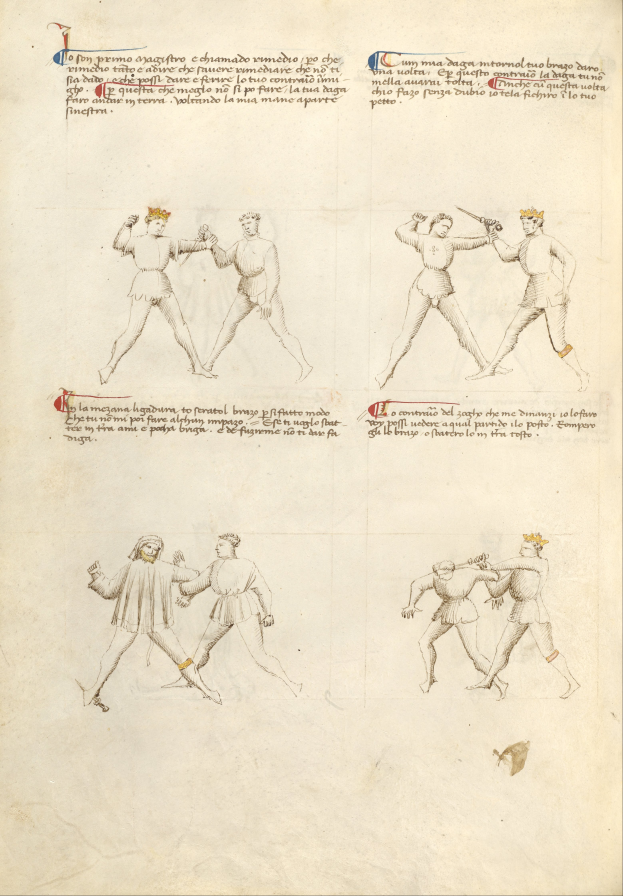 Io son primo Magistro e chiamado rimedio, po che
rimedio tāto e a dire che savere rimediare che nō ti
sia dado, e che possi dare e ferire lo tuo contraio īimi-
gho. P questa che meglio nō si po fare, la tua daga
faro andar in terra. Voltando la mia mane a parte
sinestra.
Cum mia daga intorno l tuo brazo daro
una volta. E p questo contraiō la daga tu nō
me lla avarai tolta. Anche cū questa volta
chio fazo senza dubio io te la fichiro ī lo tuo
petto.
In la mezana ligadura to serato l brazo p sifatto modo
che tu nō mi poi fare alchun impazo. E se ti voglio sbat-
ter in t'ra a mi e pocha briga. E de fuzirme nō ti dar fa-
diga.
Lo contraiō del zogho che me dinanzi io lo faro
voy possi vedere a qual partido i lo posto. Rompero
gli lo brazo o sbatero lo in t'ra tosto.